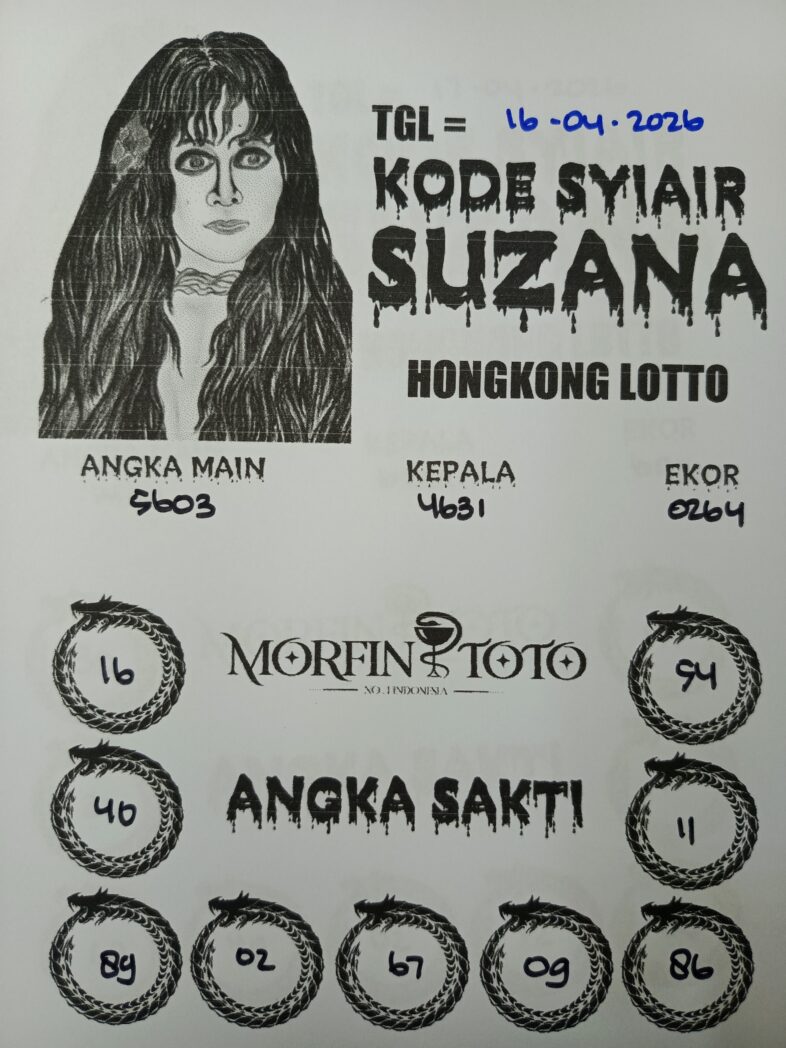 TGL = 16-04-2026
KODE SYIAIR
SUZANA
HONGKONG LOTTO
ANGKA MAIN KEPALA EKOR
5603 4631 0264
16 MORFIN TOTO 54
NO.1 INDONESIA
40 ANGKA SAKTI 11
89 02 67 09 86